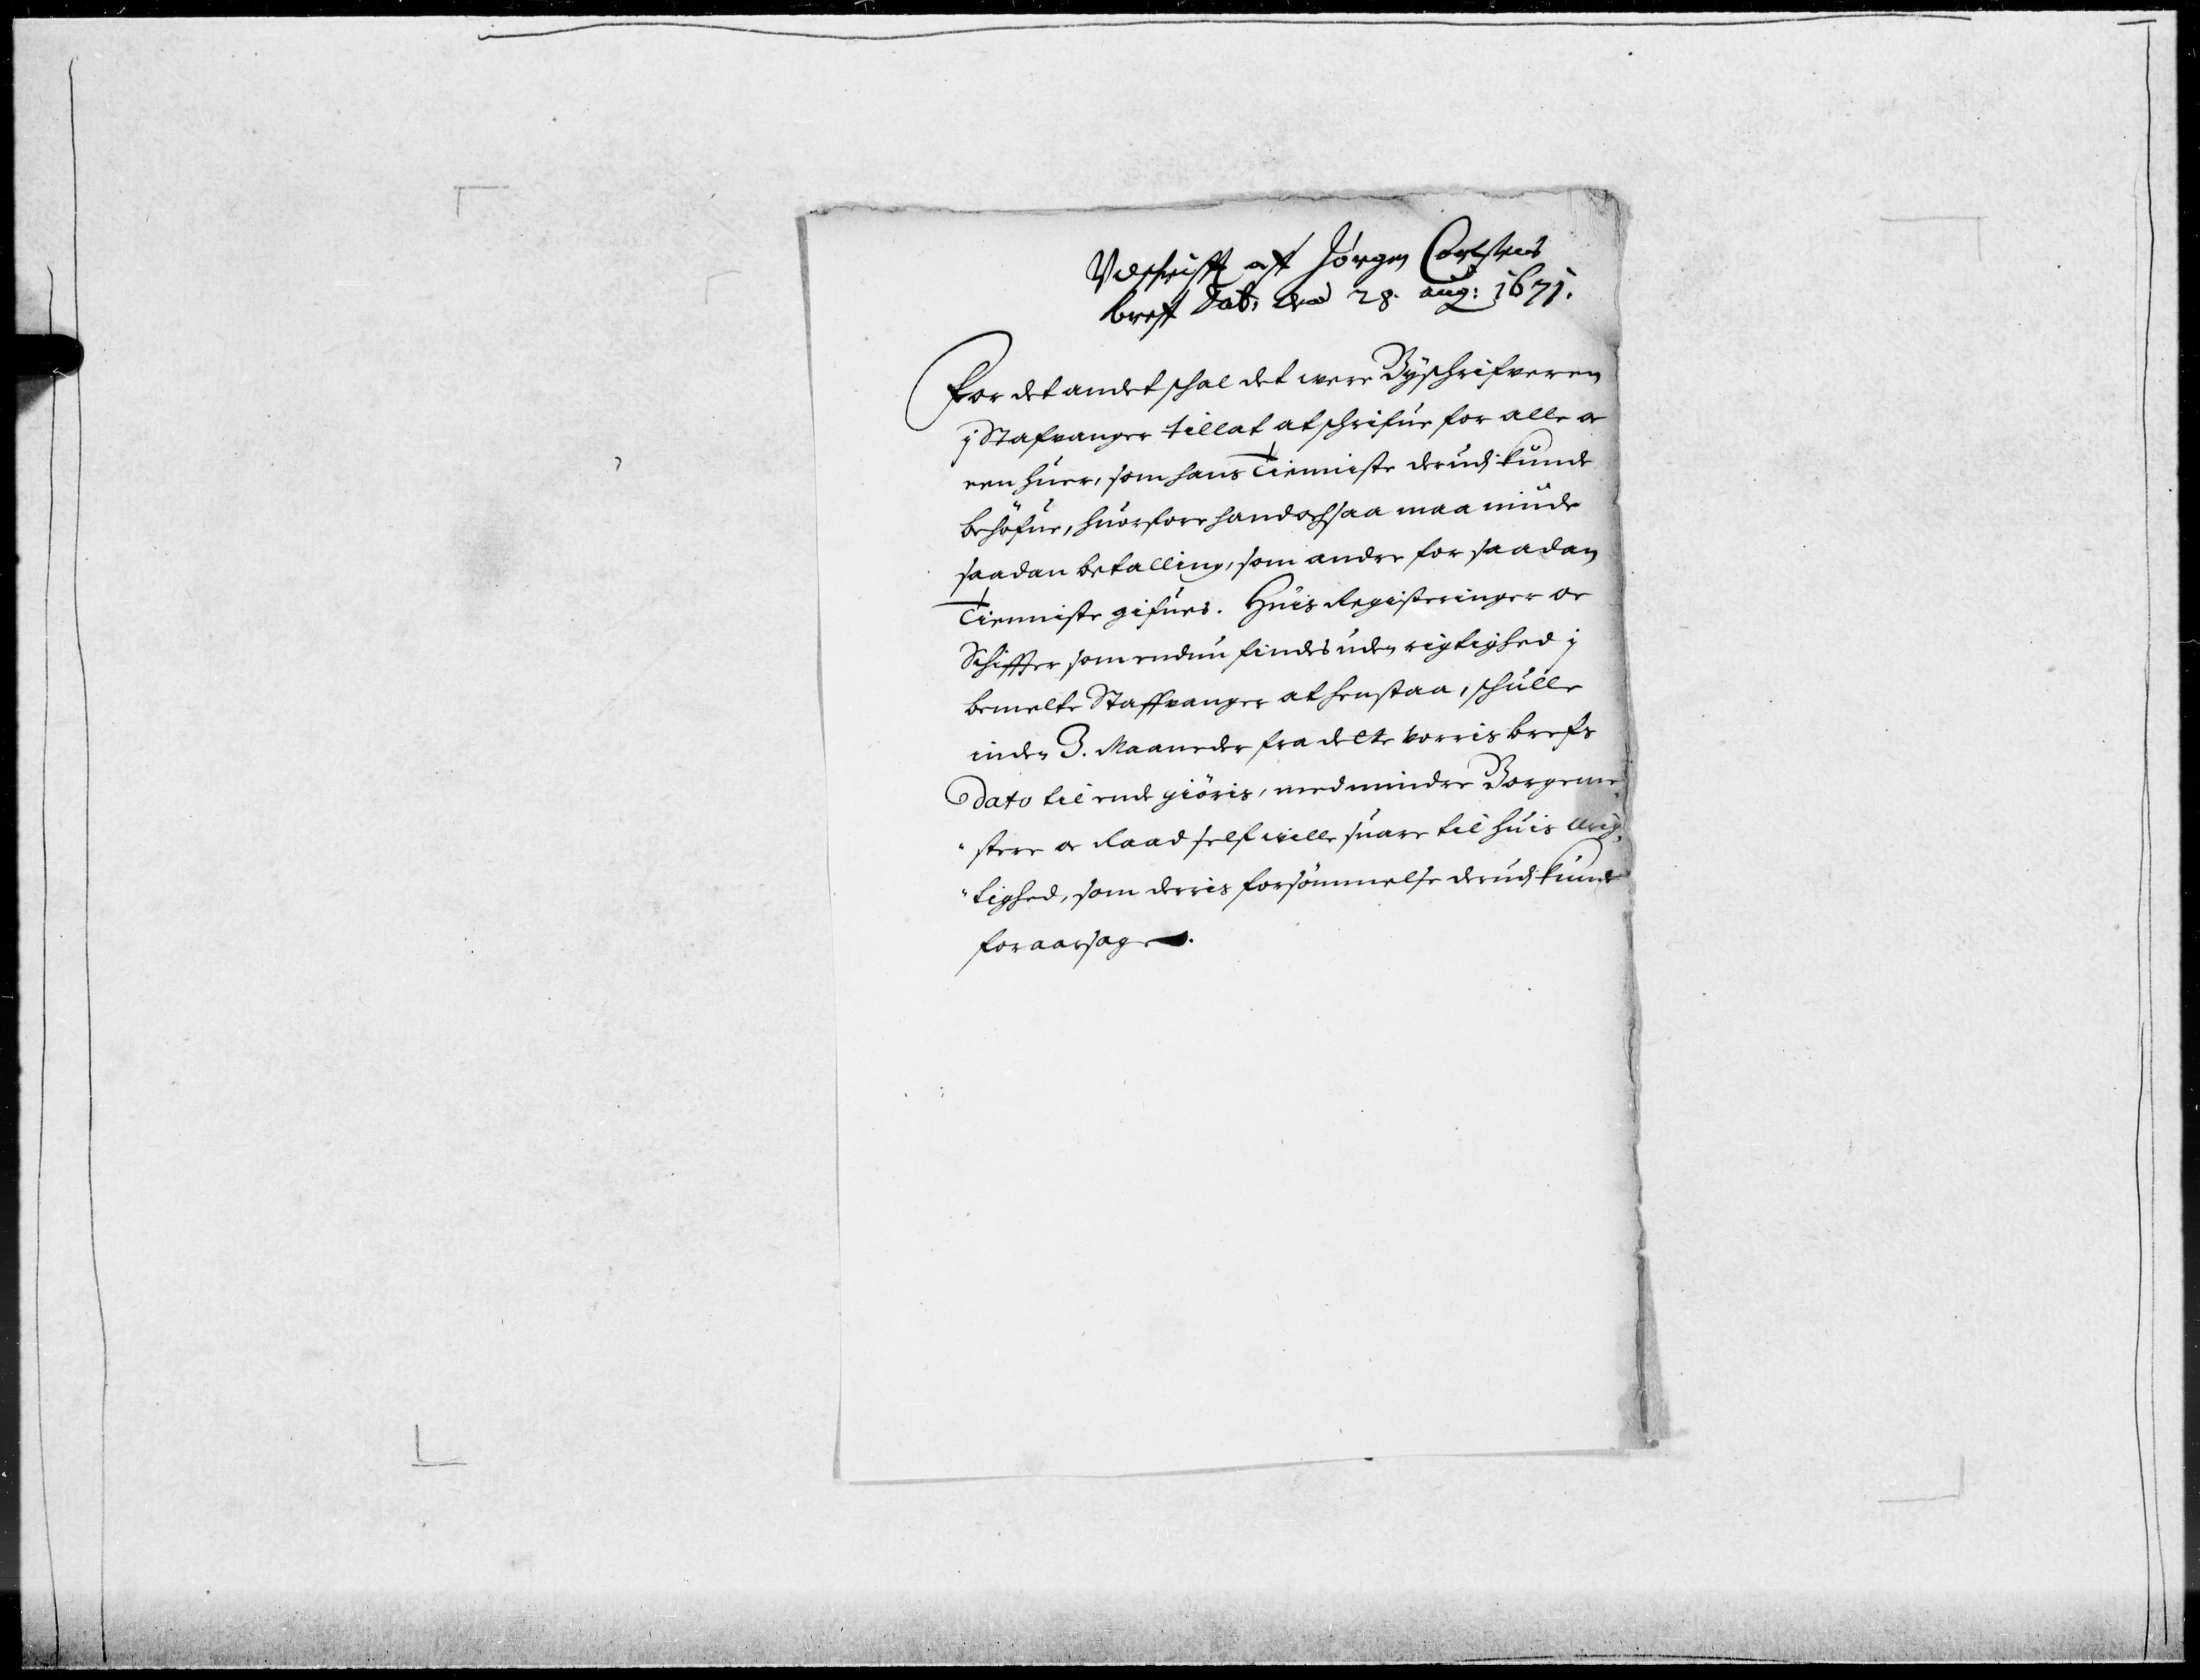 Vdschrifft aff Jörgen Carstens
breff Dat: den 28. aug: 1671.
For det andet schal det were Byschrifveren
j Stafvanger tillat at schrifue for alle oc
een huer, som hans Tienniste derudj kunde
behöfue, huorfore hand ochsaa maa niude
saadan betalling, som andre for saadan
Tienniste gifues. Huis Registeringer oc
Schiffter som endnu findes uden rigtighed j
bemelte Staffvanger at henstaa, schulle
inden 3. Maaneder fra dette vorris brefs
Dato til ende giöris, med mindre Borgeme¬
stere oc Raad self wille suare til huis Urig¬
tighed, som derris forsömmelse derudj kunde
foraarsage.